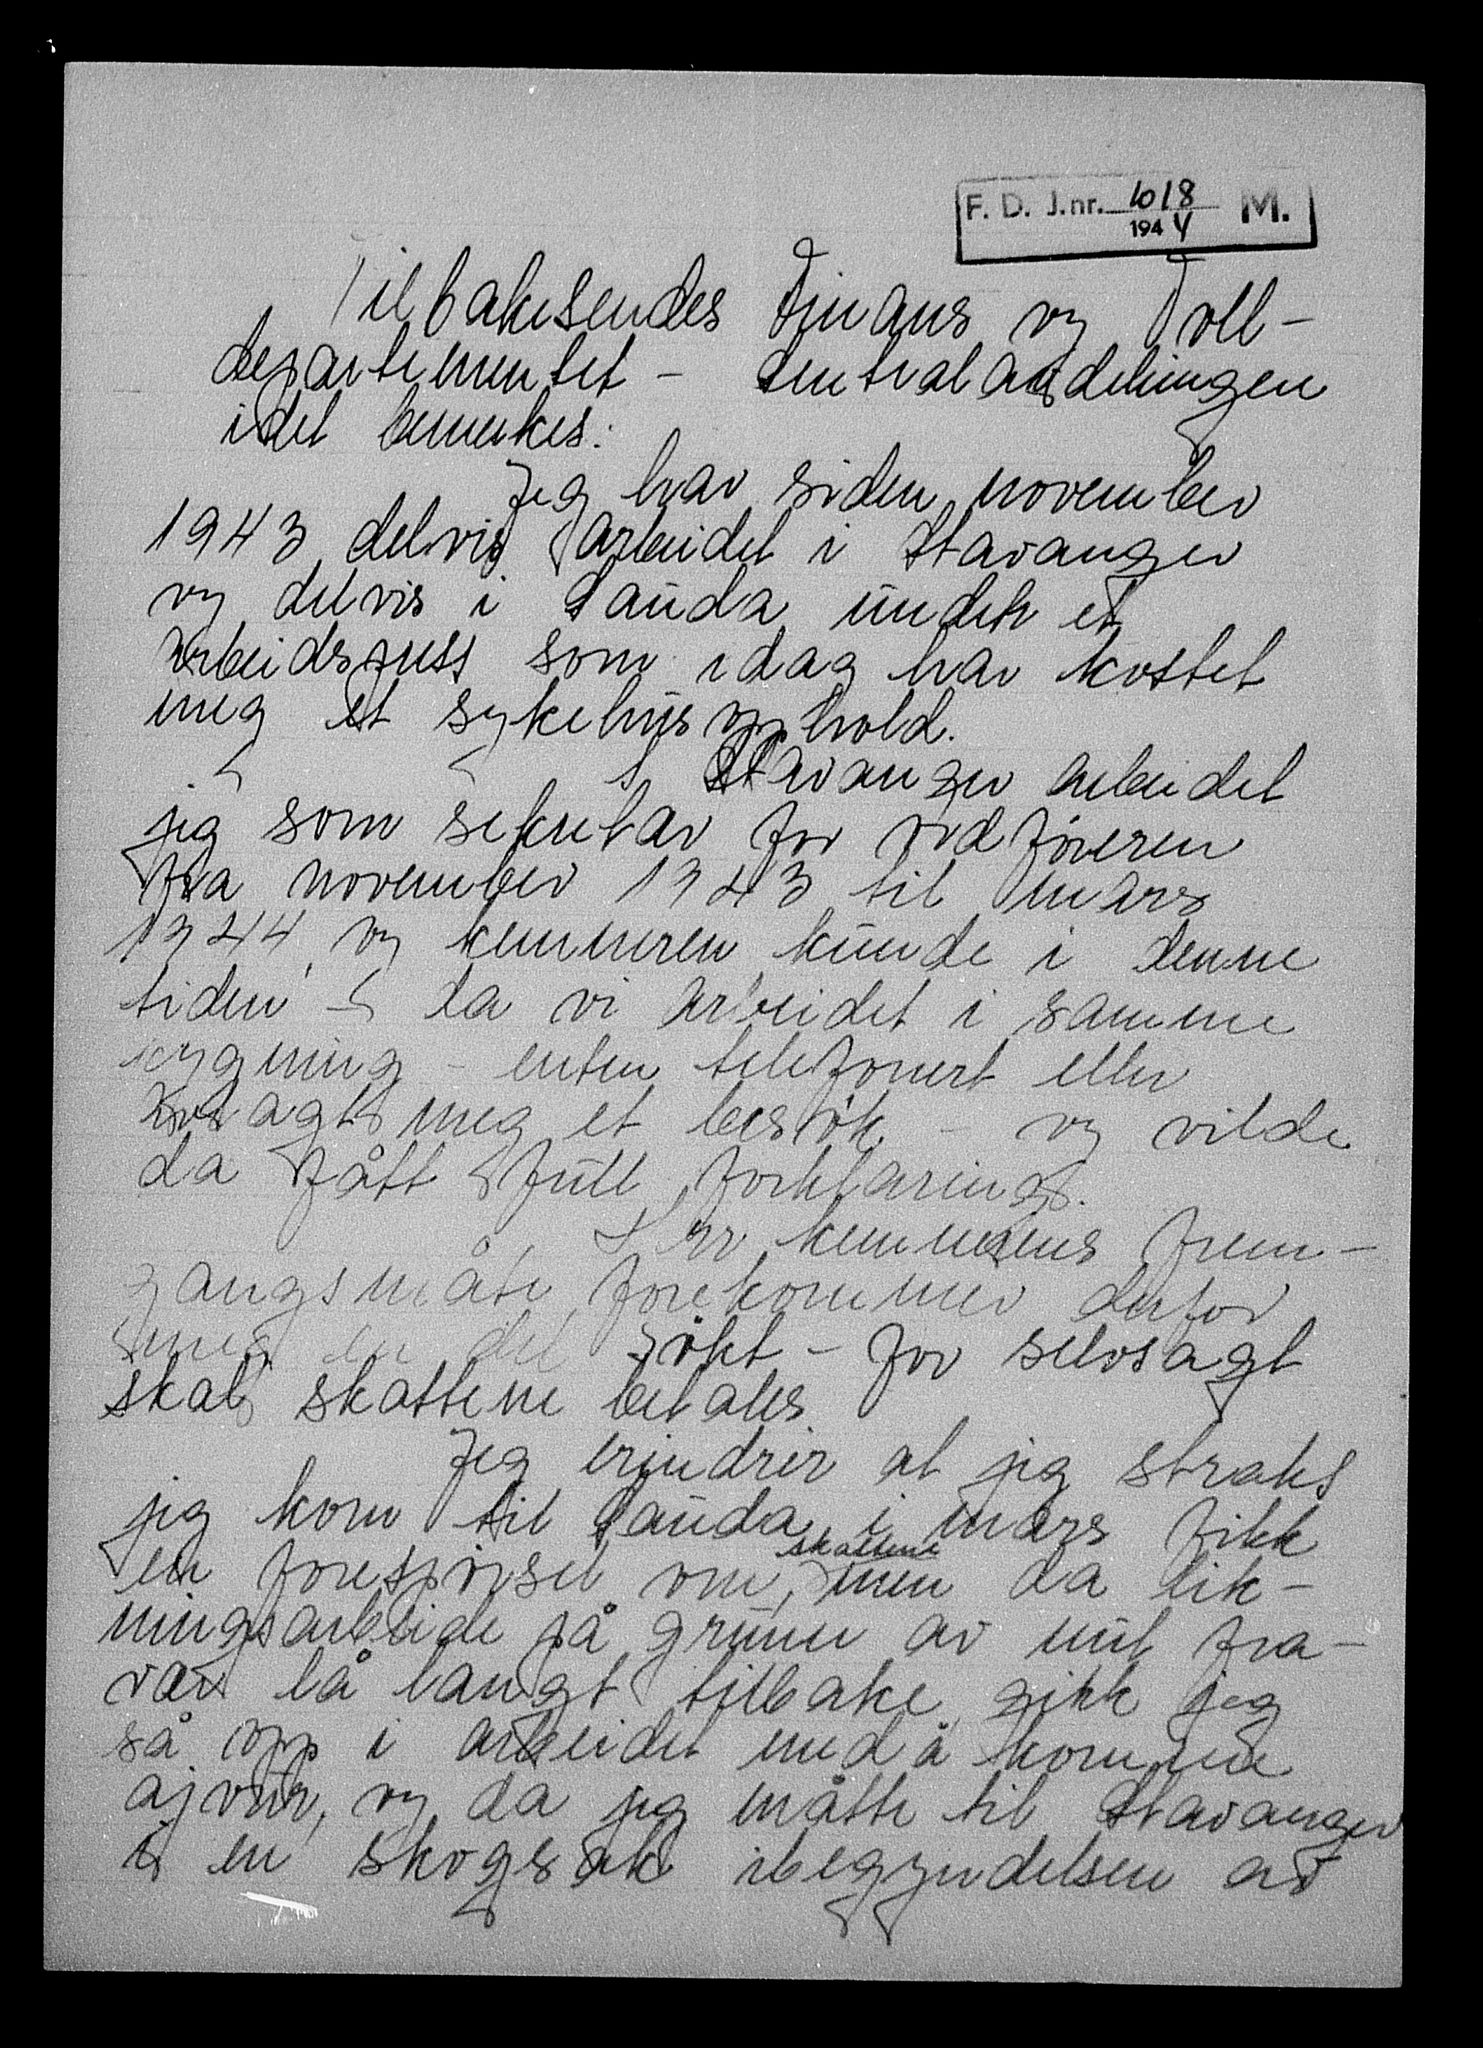 F. D. J.nr. 1018 M.
1944
Tilbakesendes Finans og Toll-
departementet - Sentralavdelingen
idet bemerkes:
Jeg har siden november
1943 delvis arbeidet i Stavanger
og delvis i Sauda under et
arbeidspress som idag har kostet
meg et sykehusopphold.
I Stavanger arbeidet
jeg som sekretær for ordføreren
fra november 1943 til mars
1944, og kemneren kunde i denne
tiden - da vi arbeidet i samme
bygning - enten telefonert eller
avlagt meg et besøk - og vilde
da fått full forklaring.
Hr. kemnerens frem-
gangsmåte forekommer derfor
meg en del søkt - for selvsagt
skal skattene betales
Jeg erindrer at jeg straks
jeg kom til Sauda i mars fikk
en forespørsel om skattene, men da lik-
ningsarbeide på grunn av mit fra-
vær lå langt tilbake gikk jeg
så opp i arbeidet med å komme
ajour, og da jeg måtte til Stavanger
i en skogsak i begyndelsen av